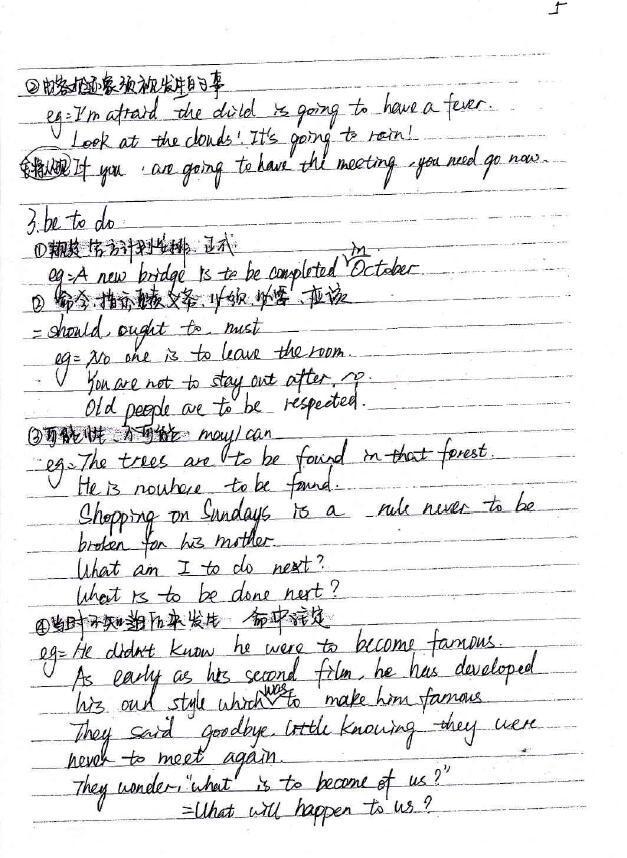 5
②由客观迹象预祝发生的事
eg=I'm afraid the child is going to have a fever.
Look at the clouds! It's going to rain!
If you are going to have the meeting, you need go now.
3. be to do
① 官方计划安排. 正式
eg=A new bridge is to be completed in October.
② 命令、指示 义务、必须、必要、应该
= should, ought to, must
eg= No one is to leave the room.
You are not to stay out after 10.
Old people are to be respected.
③可能性、不可能 may/can
eg=The trees are to be found in that forest.
He is nowhere to be found.
Shopping on Sundays is a rule never to be
broken for his mother.
What am I to do next?
What is to be done next?
④当时不知道后来发生 命中注定
eg= He didn't know he were to become famous.
As early as his second film, he has developed
his own style which was to make him famous
They said goodbye, little knowing they were
never to meet again.
They wonder, "what is to become of us?"
=What will happen to us?